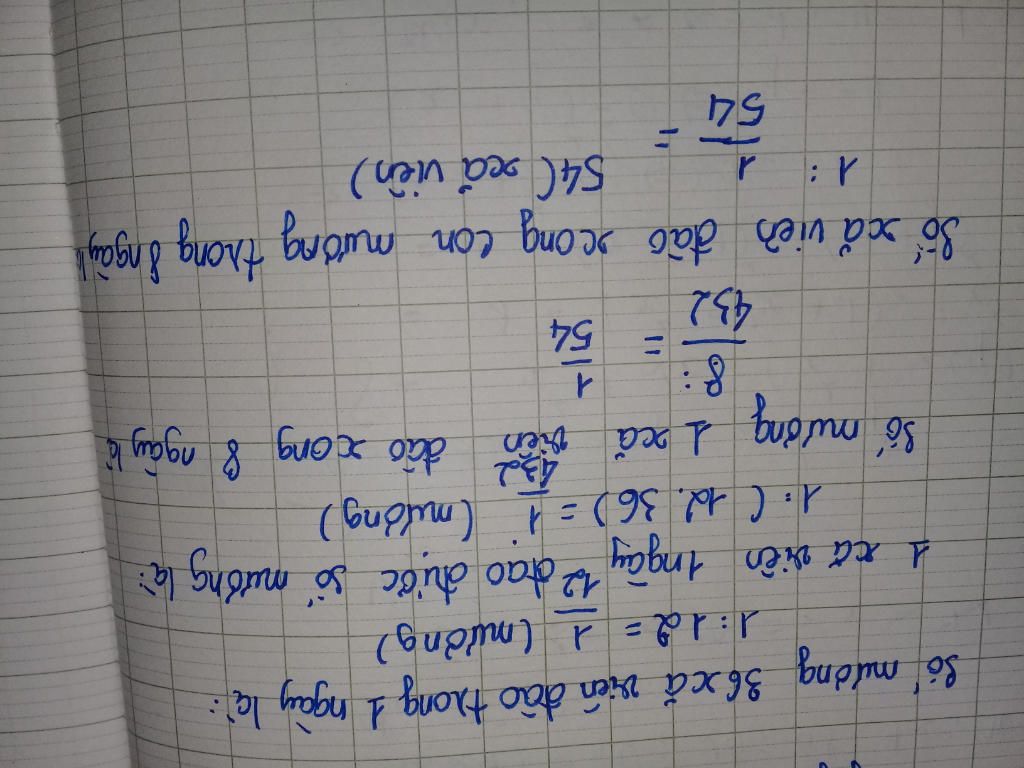 Số mương 36 xã viên đào trong 1 ngày là:
1 : 12 = 1/12 (mương)
1 xã viên 1 ngày đào được số mương là:
1 : (12. 36) = 1/432 (mương)
Số mương 1 xã viên đào xong 8 ngày là
8 : 432 = 1/54
Số xã viên đào xong con mương trong 8 ngày l
1 : 1/54 = 54 (xã viên)